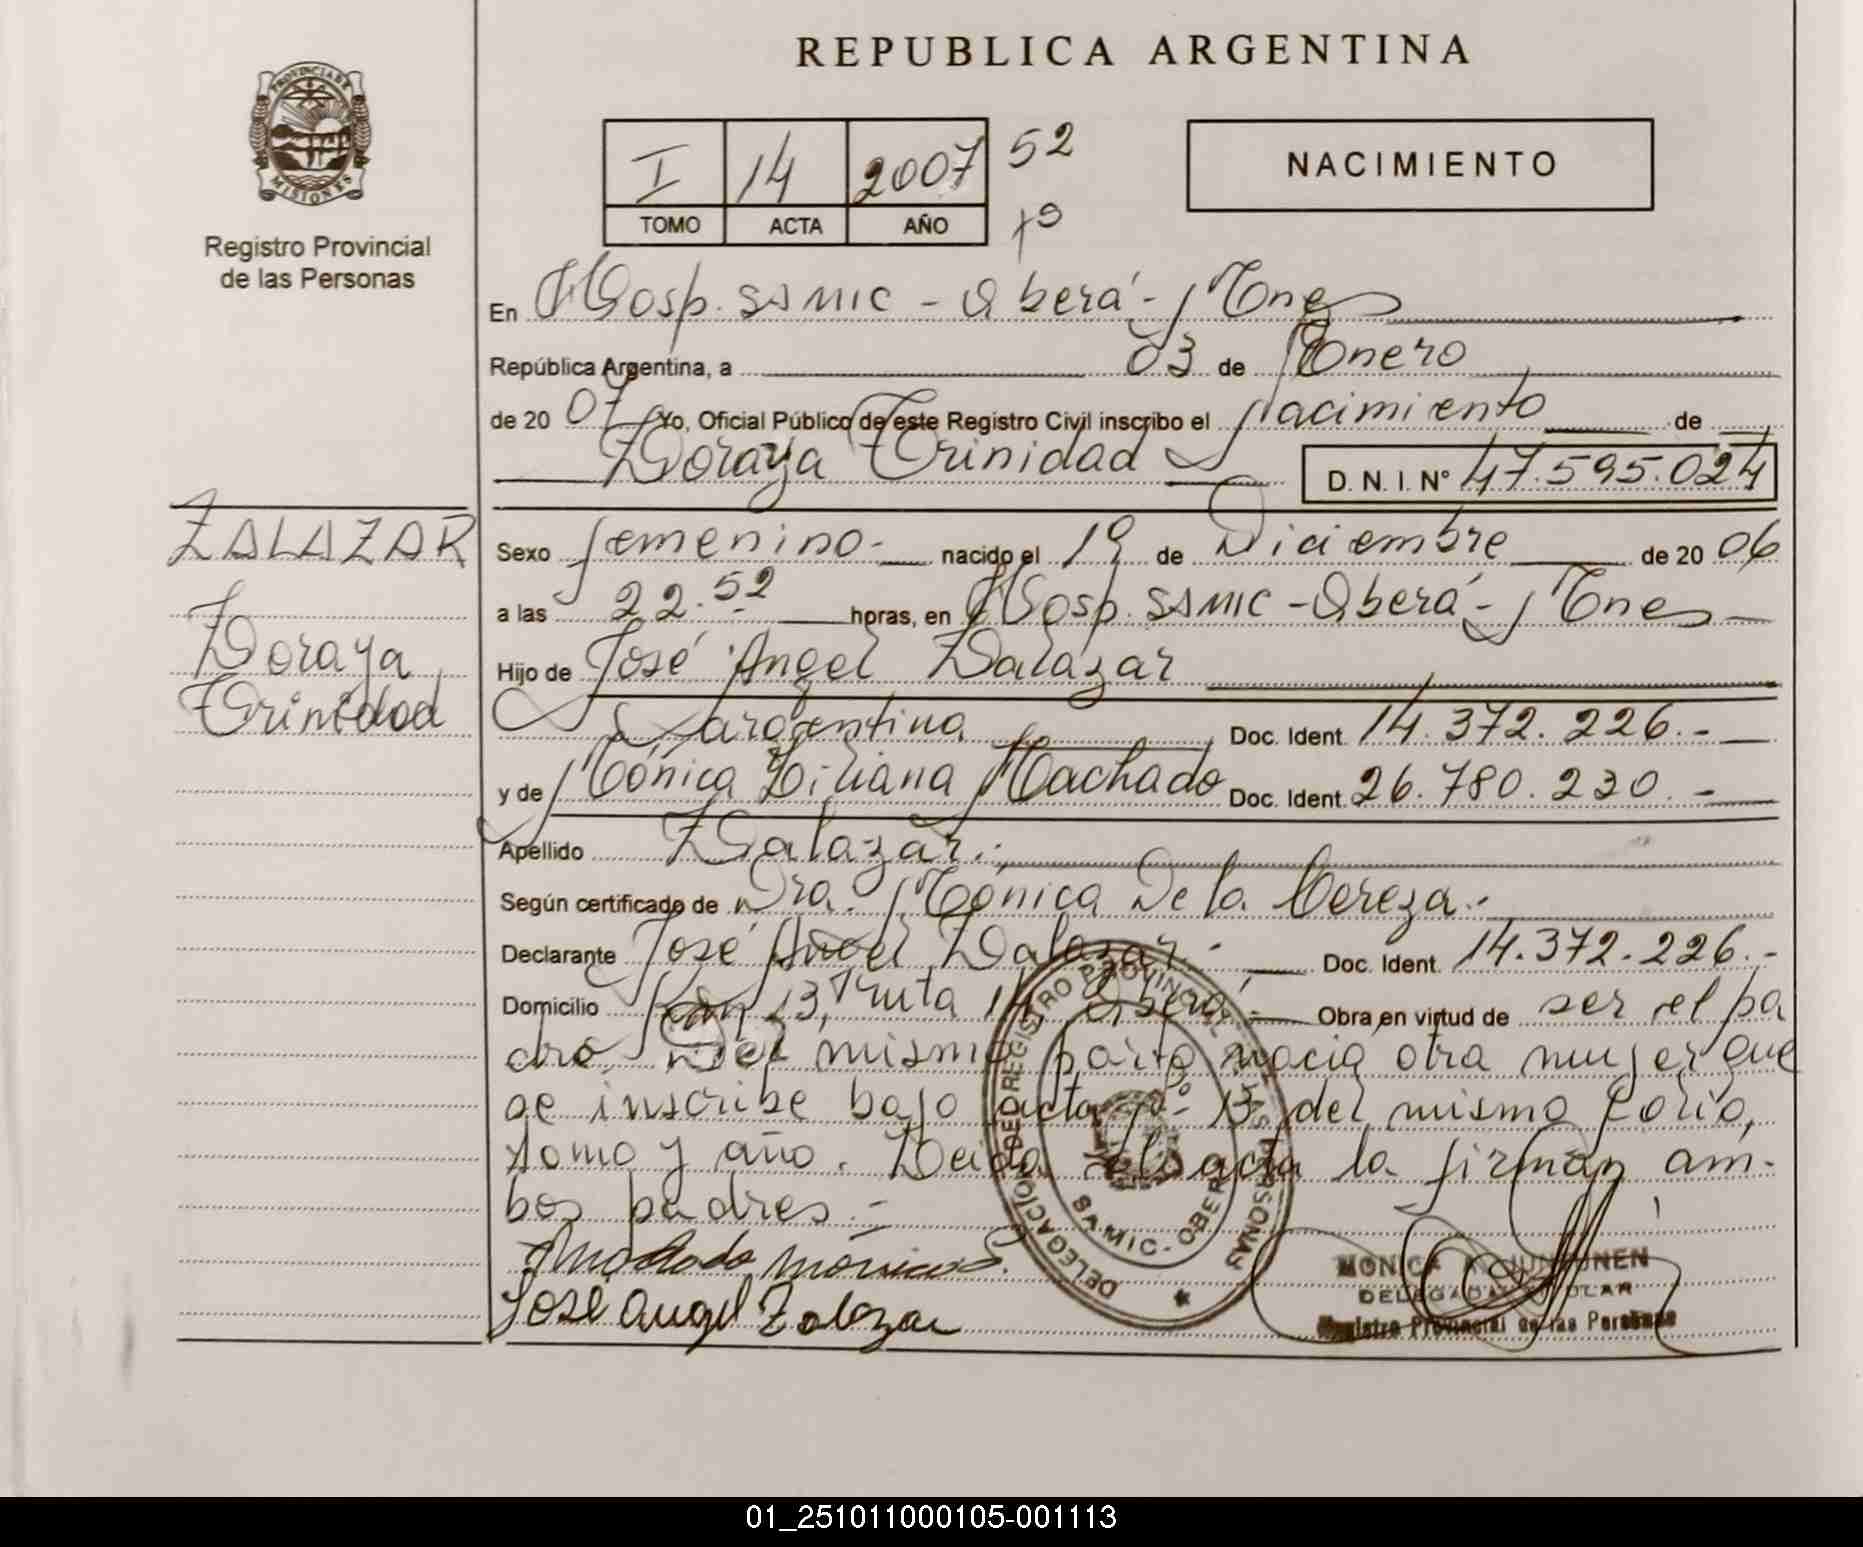 REPUBLICA ARGENTINA
PROVINCIA DE
MISIONES
Registro Provincial
de las Personas
I 14 2007 52
TOMO ACTA AÑO
NACIMIENTO
En Hosp. SAMIC - Oberá - Mnes
República Argentina, a 03 de Enero
de 20 07 Yo, Oficial Público de este Registro Civil inscribo el Nacimiento de
Soraya Trinidad D. N. I. N° 47.595.024
ZALAZAR
Soraya
Trinidad
Sexo femenino.- nacido el 19 de Diciembre de 20 06
a las 22.52 horas, en Hosp. SAMIC - Oberá - Mnes
Hijo de José Angel Zalazar
argentina Doc. Ident. 14.372.226.-
y de Mónica Liliana Machado Doc. Ident. 26.780.230.-
Apellido Zalazar.-
Según certificado de Dra. Mónica De la Cereza.-
Declarante José Angel Zalazar.- Doc. Ident. 14.372.226.-
Domicilio Km 13, ruta 14, Oberá.- Obra en virtud de ser el pa
dre. Del mismo parto nació otra mujer que
se inscribe bajo acta Nº 13 del mismo folio,
tomo y año. Leida el acta la firman am-
bos padres.-
Machado Mónica
José Angel Zalazar
DELEGACION DEL REGISTRO PROVINCIAL DE LAS PERSONAS
SAMIC - OBERA
MONICA JUNTUNEN
DELEGADA TITULAR
Registro Provincial de las Personas
01_251011000105-001113